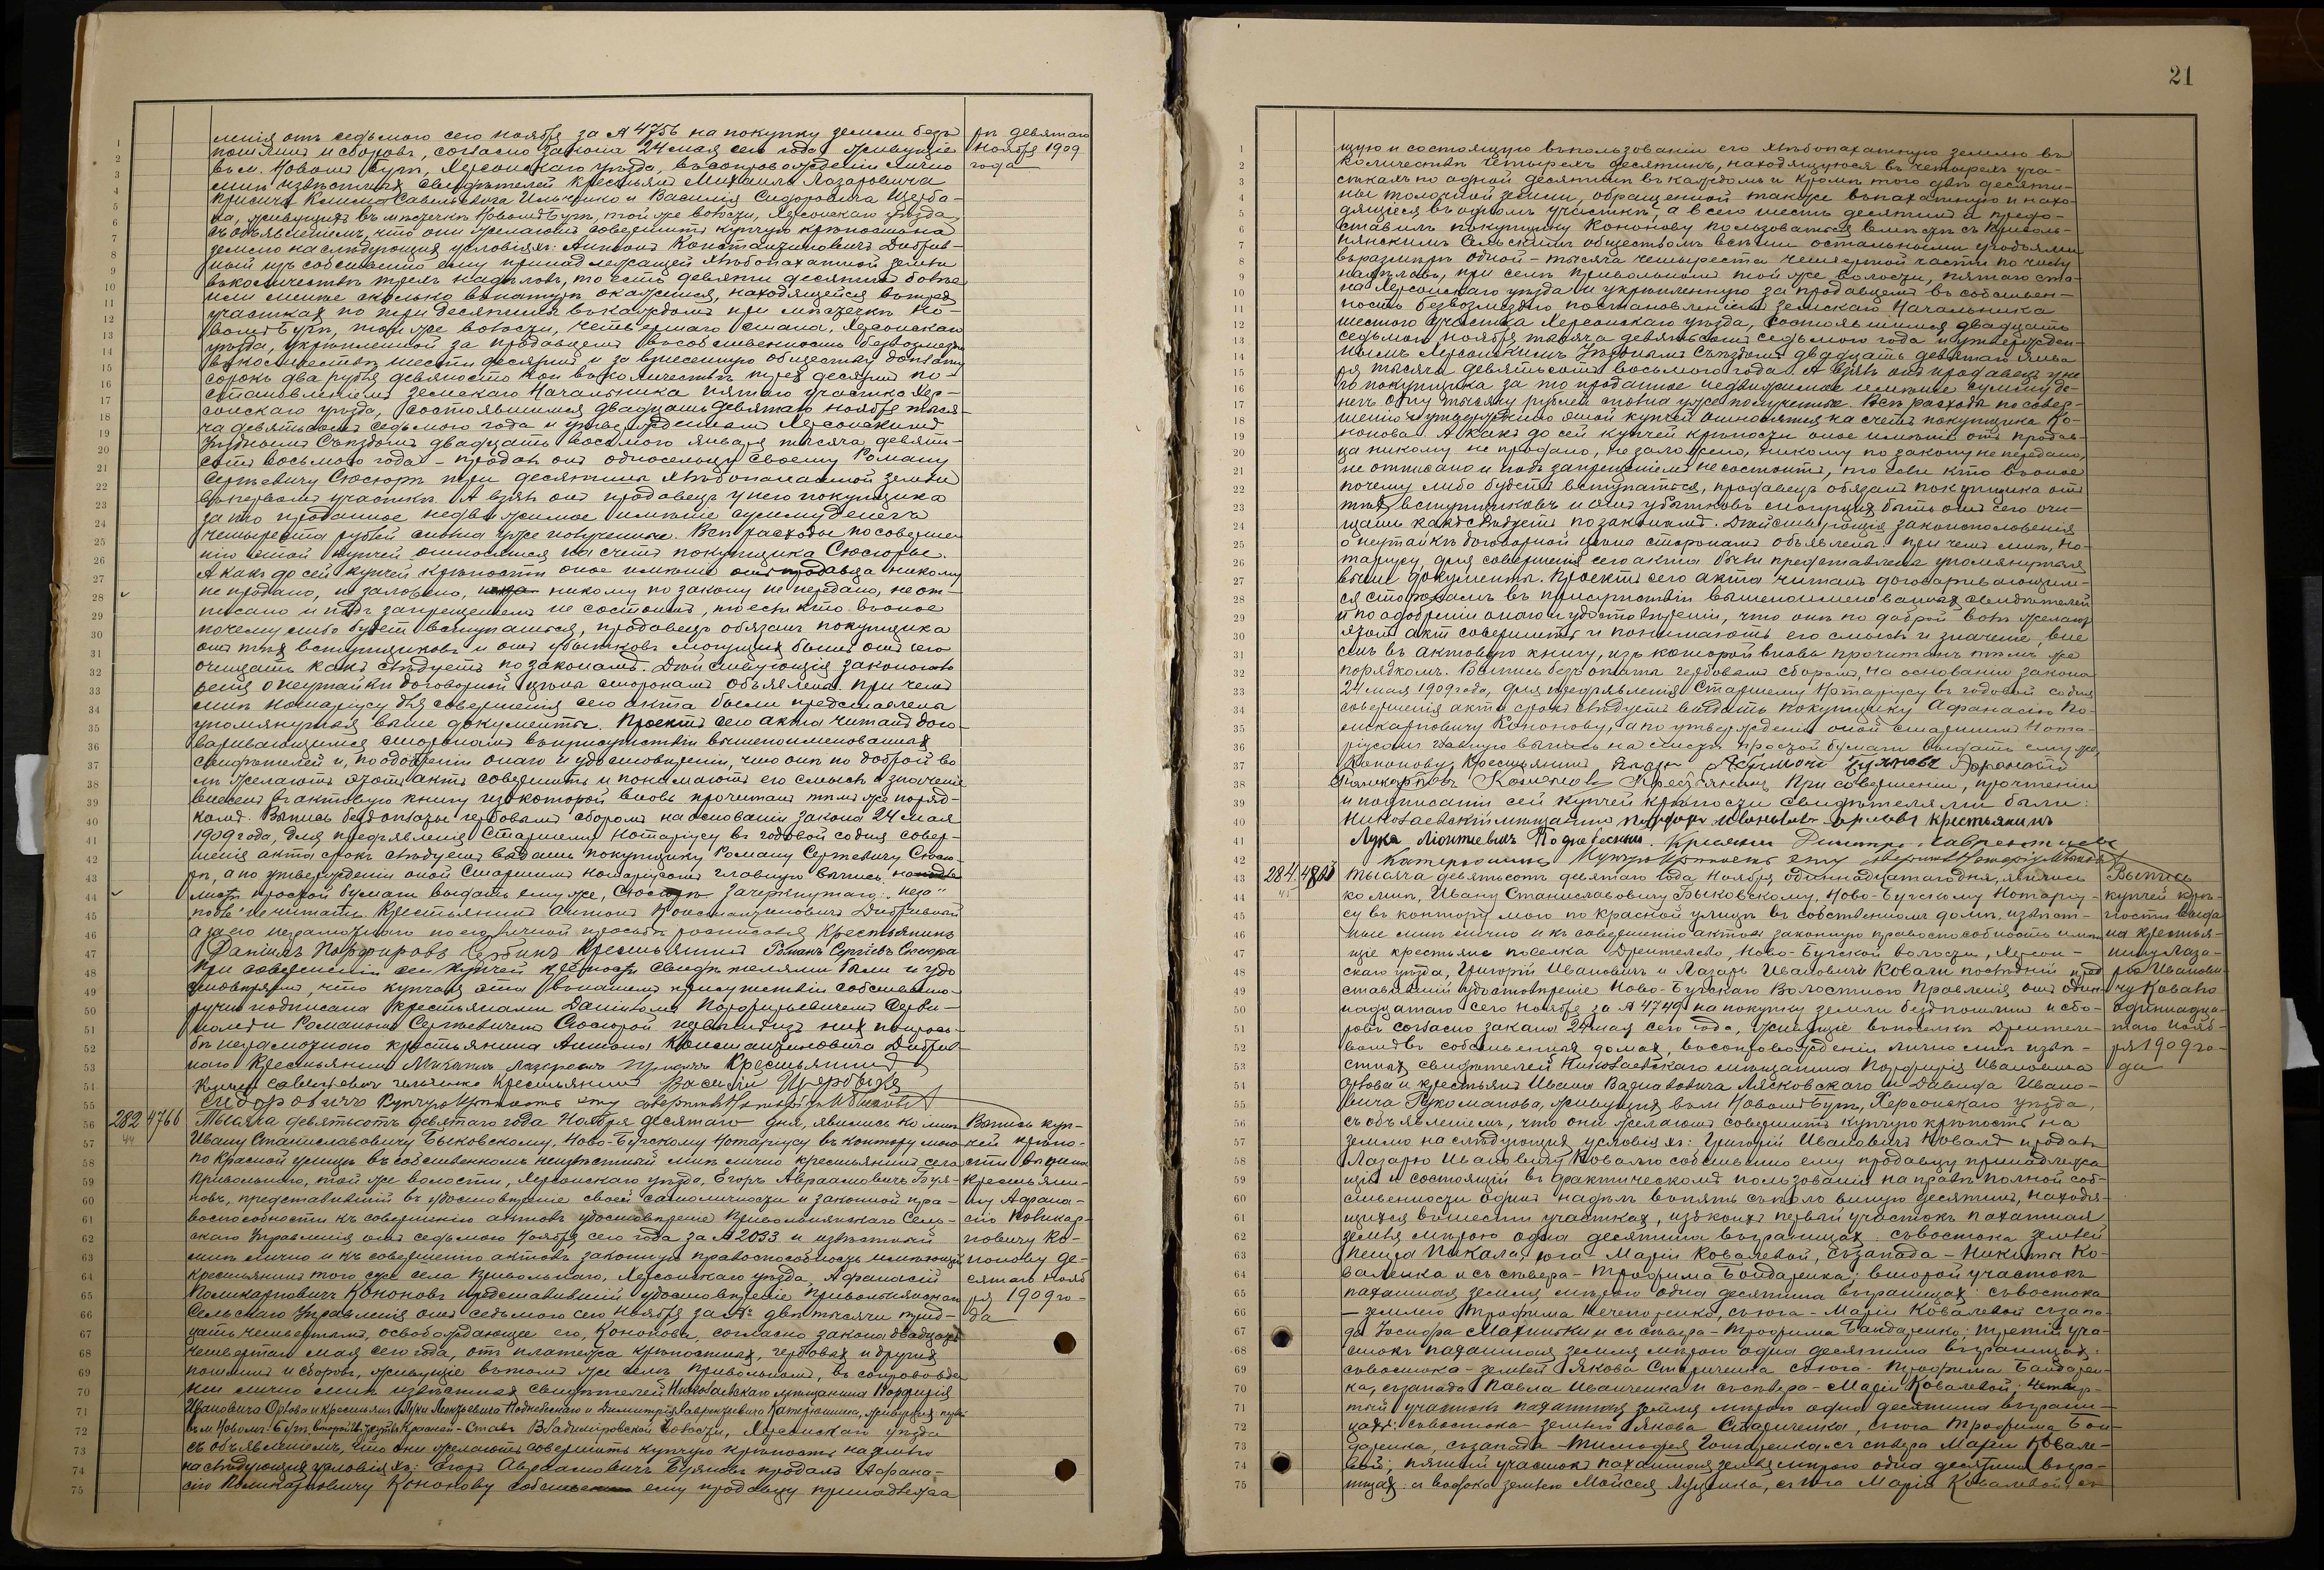 ленія отъ седьмого сего ноября за № 4756 на покупку земли безъ
пошлинъ и сборовъ, согласно закона 24 мая сего года, живущіе
въ м. Новомъ Бугѣ, Херсонскаго уѣзда, въ сопровожденіи лично
мнѣ извѣстныхъ свидѣтелей крестьянъ Михаила Лазаровича
Климa Савельевича Ильченко и Василія Сидоровича Щерба-
ка, живущихъ въ мѣстечкѣ Новомъ Бугѣ, той же волости, Херсонскаго уѣзда
съ объявленіемъ, что они желаютъ совершить купчую крѣпость на
землю на слѣдующихъ условіяхъ: Антонъ Константиновичъ
ный изъ собственно ему принадлежащей хлѣбопахатной земли
въ количествѣ трехъ надѣловъ, то есть девяти десятинъ болѣе
или менѣе сколько въ натурѣ окажется, находящейся въ трехъ
участкахъ по три десятины въ каждомъ при мѣстечкѣ Но-
вомъ Бугѣ, той же волости, четвертаго стана, Херсонскаго
уѣзда, укрѣпленной за продавцемъ въ собственность безвозмездно
въ количествѣ шести десятинъ и за внесенную обществу доплату
сорокъ два рубля девяносто коп въ количествѣ трехъ десятинъ по-
становленіемъ Земскаго Начальника пятаго участка Хер-
сонскаго уѣзда, состоявшимся двадцать девятаго ноября тыся-
ча девятьсотъ седьмого года и утвержденнымъ Херсонскимъ
Уѣзднымъ Съѣздомъ двадцать восьмого января тысяча девять-
сотъ восьмого года – продалъ онъ односельцу своему Роману
Сергѣевичу Сюсюрѣ три десятины хлѣбопахатной земли
въ первомъ участкѣ. А взялъ онъ продавецъ у него покупщика
за то проданное недвижимое имѣніе сумму денегъ
четыреста рублей сполна уже полученные. Всѣ расходы по соверше
нію этой купчей относятся на счетъ покупщика Сюсюры.
А какъ до сей купчей крѣпости оное имѣніе отъ продавца никому
не продано, не заложено, никому по закону не передано, не от-
писано и подъ запрещеніемъ не состоитъ, то если кто въ оное
почему либо будетъ вступаться, продавецъ обязанъ покупщика
отъ тѣхъ вступщиковъ и отъ убытковъ могущихъ быть отъ сего
очищать какъ слѣдуетъ по законамъ. Дѣйствующія законополо
женія о неустойкѣ договорной цѣны сторонамъ объявлены. При чемъ
мнѣ Нотаріусу для совершенія сего акта были представлены
упомянутыя выше документы. Проектъ сего акта читанъ дого-
варивающимся сторонамъ въ присутствіи вышепоименованныхъ
свидѣтелей и, по одобреніи онаго и удостовѣреніи, что они по доброй во
лѣ желаютъ этотъ актъ совершить и понимаютъ его смыслъ и значеніе
внесенъ въ актовую книгу изъ которой вновь прочитанъ тѣмъ же поряд-
комъ. Выпись безъ оплаты гербовымъ сборомъ на основаніи закона 24 мая
1909 года, для предъявленія Старшему Нотаріусу въ годовой со дня совер-
шенія акта срокъ слѣдуетъ выдать покупщику Роману Сергѣевичу Сюсю-
рѣ, а по утвержденіи оной Старшимъ Нотаріусомъ главную выпись на
листѣ простой бумаги выдать ему же, Сюсюрѣ. Зачеркнутаго:
не читать. Крестьянинъ Антонъ Константиновичъ
а за его неграмотнаго по его личной просьбѣ росписался Крестьянинъ
Даніилъ Порфировъ Сербинъ Крестьянинъ Романъ Сергѣевъ Сюсюра
При совершеніи сей купчей крѣпости свидѣтелями были и удо
стовѣряемъ, что купчая эта въ нашемъ присутствіи собственно-
ручно подписана крестьянами Даніиломъ Порфирьевичемъ Серби-
нымъ и Романомъ Сергѣевичемъ Сюсюрой первый изъ нихъ по прось-
бѣ неграмотнаго крестьянина Антона Константиновича
наго Крестьянинъ Михаилъ Лазаровъ Крестьянинъ
Климъ Савельевъ Ильченко Крестьянинъ Василій Щербака
Сидоровичъ Купчую крѣпость эту совершилъ Нотаріусъ И Быковскій
въ девятаго
ноября 1909
года
282 4766 Тысяча девятьсотъ девятаго года Ноября десятаго дня, явились ко мнѣ
44
Ивану Станиславовичу Быковскому, Ново-Бугскому Нотаріусу въ контору мою
по Красной улицѣ въ собственномъ неизвѣстный мнѣ лично крестьянинъ села
Привольнаго, той же волости, Херсонскаго уѣзда, Егоръ Авраамовичъ Буя-
новъ, представившій въ удостовѣреніе своей самоличности и законной пра-
воспособности къ совершенію актовъ удостовѣреніе Привольнянскаго Сель-
скаго Управленія отъ седьмого Ноября сего года за № 2033 и извѣстный
мнѣ лично и къ совершенію актовъ законную правоспособность имѣющій
крестьянинъ того же села Привольнаго, Херсонскаго уѣзда, Афанасій
Поликарповичъ Кононовъ представившій удостовѣреніе Привольнянскаго
Сельскаго Управленія отъ седьмого сего ноября за № двѣ тысячи трид-
цать четвертымъ, освобождающее его, Кононова, согласно закона двадцать
четвертаго мая сего года, отъ платежа крѣпостныхъ, гербовыхъ и другихъ
пошлинъ и сборовъ, живущіе въ томъ же селѣ Привольномъ, въ сопровожде
ніи лично мнѣ извѣстныхъ свидѣтелей Николаевскаго мѣщанина Порфирія
Ивановича Орлова и крестьянъ Луки Леонтьевича Поднебеснаго и Димитрія Лаврентьевича Катеринина, живущихъ первый
въ м Новомъ-Бугѣ, второй въ Красной-Ставѣ Владимировской волости, Херсонскаго уѣзда
съ объявленіемъ, что они желаютъ совершить купчую крѣпость на землю
на слѣдующихъ условіяхъ: Егоръ Авраамовичъ Буяновъ продалъ Афана-
сію Поликарповичу Кононову собственно ему продавцу принадлежа
Выпись куп-
чей крѣпо-
сти выдана
крестьяни-
ну Афана-
сію Поликар-
повичу Ко-
нонову де-
сятаго Нояб
ря 1909 го-
да
21
щую и состоящую въ пользованіи его хлѣбопахатную землю въ
количествѣ четырехъ десятинъ, находящуюся въ четырехъ уча-
сткахъ по одной десятинѣ въ каждомъ и кромѣ того двѣ десяти-
ны толочной земли, обращенной также въ пахатную и нахо-
дящіеся въ одномъ участкѣ, а всего шесть десятинъ и предо-
ставилъ покупщику Кононову пользоваться вмѣстѣ съ Приволь-
нянскимъ Сельскимъ обществомъ всѣми остальными угодьями
въ размѣрѣ одной – тысяча четыреста четвертой части по числу
надѣловъ, при селѣ Привольномъ той же волости, пятаго ста-
на Херсонскаго уѣзда и укрѣпленную за продавцемъ въ собствен-
ность безвозмездно постановленіемъ Земскаго Начальника
шестого участка Херсонскаго уѣзда, состоявшимся двадцать
седьмого ноября тысяча девятьсотъ седьмого года и утвержден-
нымъ Херсонскимъ Уѣзднымъ Съѣздомъ двадцать девятаго янва
ря тысяча девятьсотъ восьмого года. А взялъ онъ продавецъ у не-
го покупщика за то проданное недвижимое имѣніе сумму де-
негъ одну тысячу рублей сполна уже полученные. Всѣ расходы по совер-
шенію и утвержденію этой купчей относятся на счетъ покупщика Ко-
нонова. А какъ до сей купчей крѣпости оное имѣніе отъ продав-
ца никому не продано, не заложено, никому по закону не передано,
не отписано и подъ запрещеніемъ не состоитъ, то если кто въ оное
почему либо будетъ вступаться, продавецъ обязанъ покупщика отъ
тѣхъ вступщиковъ и отъ убытковъ могущихъ быть отъ сего очи-
щать какъ слѣдуетъ по законамъ. Дѣйствующія законоположенія
о неустойкѣ договорной цѣны сторонамъ объявлены. При чемъ мнѣ, Но-
таріусу, для совершенія сего акта были представлены упомянутыя
выше документы. Проектъ сего акта читанъ договаривающим-
ся сторонамъ въ присутствіи вышепоименованныхъ свидѣтелей
и по одобреніи онаго и удостовѣреніи, что они по доброй волѣ желаютъ
этотъ актъ совершить и понимаютъ его смыслъ и значеніе, вне
сенъ въ актовую книгу, изъ которой вновь прочитанъ тѣмъ же
порядкомъ. Выпись безъ оплаты гербовымъ сборомъ, на основаніи закона
24 мая 1909 года, для предъявленія Старшему Нотаріусу въ годовой со дня
совершенія акта срокъ слѣдуетъ выдать покупщику Афанасію По-
ликарповичу Кононову, а по утвержденіи оной старшимъ Нота-
ріусомъ главную выпись на листѣ простой бумаги выдать ему же,
Кононову. Крестьянинъ Буяновъ Афанасій
Поликарповъ Кононовъ Крестьянинъ. При совершеніи, прочтеніи
и подписаніи сей купчей крѣпости свидѣтелями были:
Николаевскій мѣщанинъ Порфирій Ивановъ Орловъ крестьянинъ
Лука Леонтьевичъ Поднебесный. Крестьянинъ Димитрій Лаврентьевъ
Катерининъ Купчую крѣпость эту совершилъ Нотаріусъ И Быковскій
284 4803 Тысяча девятьсотъ девятаго года Ноября одиннадцатаго дня, явились
45
ко мнѣ, Ивану Станиславовичу Быковскому, Ново-Бугскому Нотаріу-
су въ контору мою по красной улицѣ въ собственномъ домѣ, извѣст-
ные мнѣ лично и къ совершенію актовъ законную правоспособность имѣю
щіе крестьяне поселка Дрителево, Ново-Бугской волости, Херсон-
скаго уѣзда, Григорій Ивановичъ и Лазарь Ивановичъ Ковали послѣдній пред
ставившій удостовѣреніе Ново-Бугскаго Волостного Правленія отъ один-
надцатаго сего ноября за № 4749 на покупку земли безъ пошлинъ и сбо-
ровъ согласно закона 24 мая сего года, живущіе въ поселкѣ Дрителе-
вомъ въ собственныхъ домахъ, въ сопровожденіи лично мнѣ извѣ-
стныхъ свидѣтелей Николаевскаго мѣщанина Порфирія Ивановича
Орлова и крестьянъ Ивана Вацлавовича Лясковскаго и Давида Ивано-
вича Рукоманова, живущихъ въ м Новомъ Бугѣ, Херсонскаго уѣзда,
съ объявленіемъ, что они желаютъ совершить купчую крѣпость на
землю на слѣдующихъ условіяхъ: Григорій Ивановичъ Коваль продалъ
Лазарю Ивановичу Ковалю собственно ему продавцу принадлежа
щій и состоящій въ фактическомъ пользованіи на правѣ полной соб-
ственности одинъ надѣлъ въ пять съ половиною десятинъ, находя-
щихся въ шести участкахъ, изъ коихъ первый участокъ пахатная
земля мѣрою одна десятина въ границахъ: съ востока землей
Пикала, юга – Маріи Ковалевой, съ запада – Никиты Ко-
валенка и съ сѣвера – Трофима Бондаренка; второй участокъ
пахатная земля мѣрою одна десятина въ границахъ: съ востока
– землею Трофима Нечепоренко, съ юга – Маріи Ковалевой съ запа-
да Іосифа Махинки и съ сѣвера – Трофима Бондаренко; третій уча-
стокъ пахатная земля мѣрою одна десятина въ границахъ:
съ востока – землей Якова Стариченка съ юга – Трофима Бондарен-
ка, съ запада Павла Иванченка и съ сѣвера – Маріи Ковалевой; четвер-
тый участокъ пахатная земля мѣрою одна десятина въ грани-
цахъ: съ востока – землею Якова Стариченка, съ юга Трофима Бон-
даренка, съ запада – Тимофея Гончаренка и съ сѣвера Маріи Ковале-
вой; пятый участокъ пахатная земля мѣрою одна десятина въ гра-
ницахъ: съ востока землею Моисея Луценка, съ юга Маріи Ковалевой, съ
Выпись
купчей крѣ-
пости выда
на крестья-
нину Лаза-
рю Иванови-
чу Ковалю
одиннадца-
таго нояб-
ря 1909 го-
да